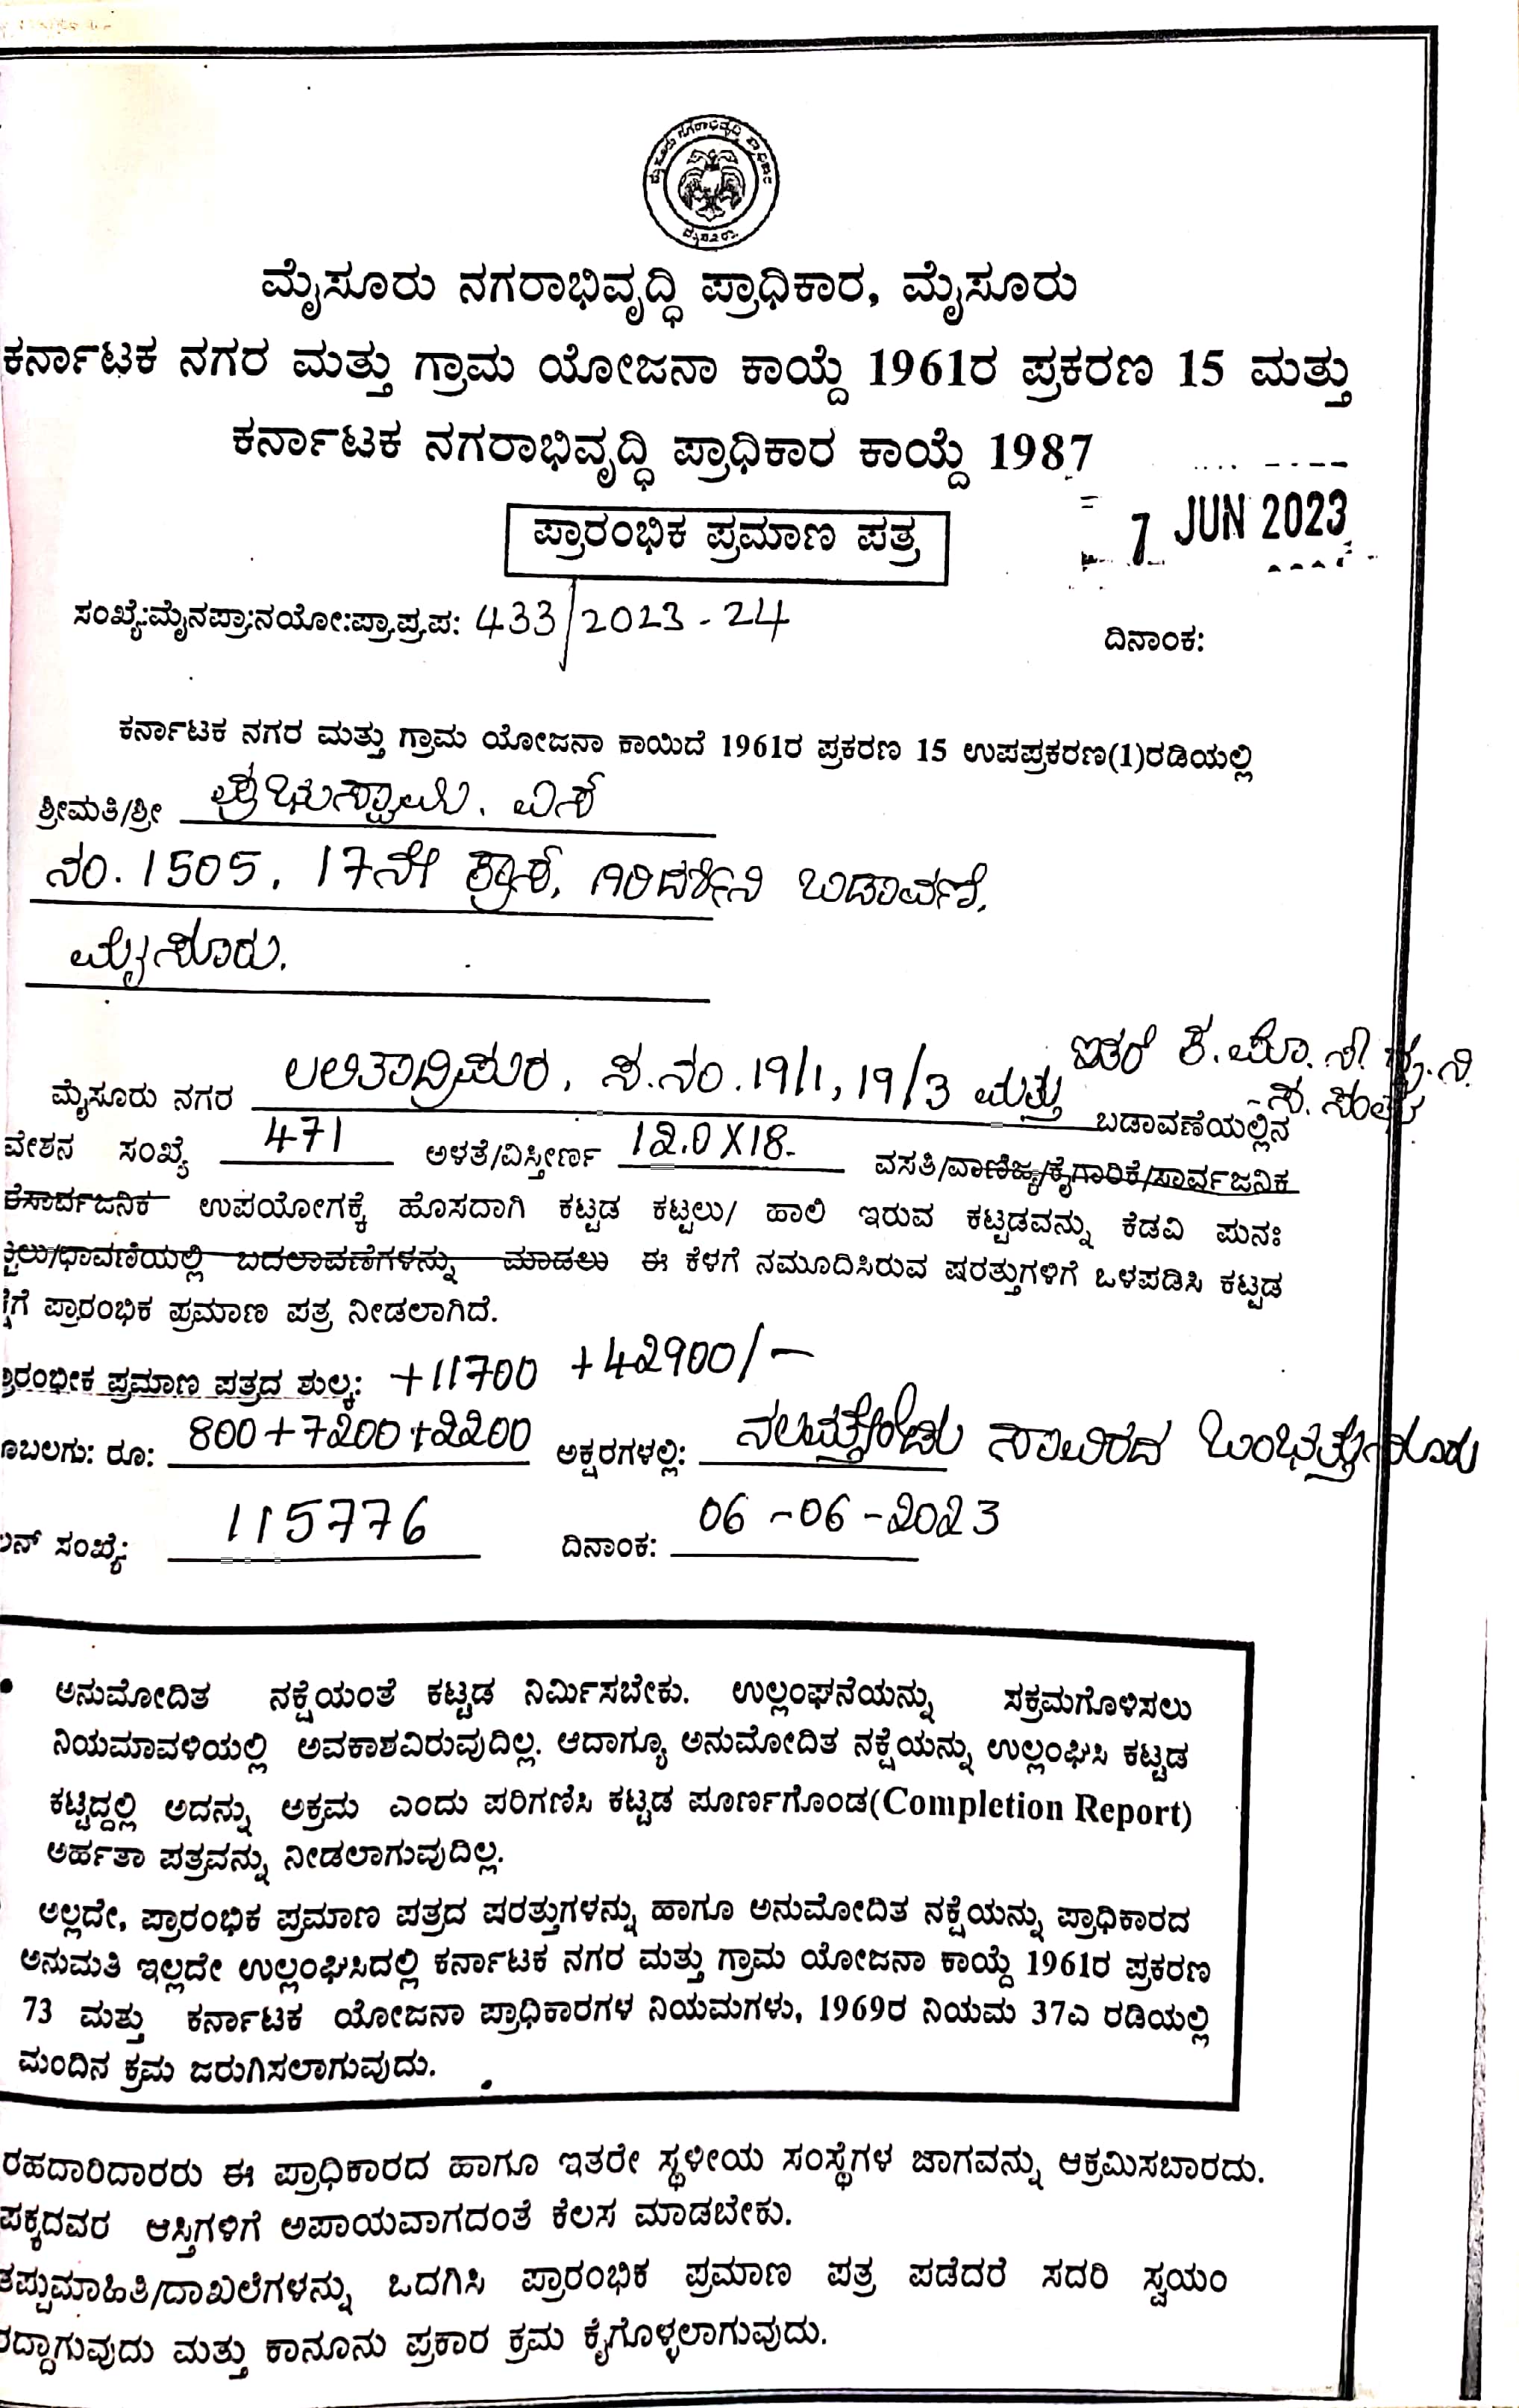 ಮೈಸೂರು ನಗರಾಭಿವೃದ್ಧಿ ಪ್ರಾಧಿಕಾರ, ಮೈಸೂರು
ಕರ್ನಾಟಕ ನಗರ ಮತ್ತು ಗ್ರಾಮ ಯೋಜನಾ ಕಾಯ್ದೆ 1961ರ ಪ್ರಕರಣ 15 ಮತ್ತು
ಕರ್ನಾಟಕ ನಗರಾಭಿವೃದ್ಧಿ ಪ್ರಾಧಿಕಾರ ಕಾಯ್ದೆ 1987
ಪ್ರಾರಂಭಿಕ ಪ್ರಮಾಣ ಪತ್ರ
7 JUN 2023
ಸಂಖ್ಯೆ:ಮೈನಪ್ರಾ:ನಯೋ:ಪ್ರಾ.ಪ್ರ.ಪ: 433/2023-24 ದಿನಾಂಕ:
ಕರ್ನಾಟಕ ನಗರ ಮತ್ತು ಗ್ರಾಮ ಯೋಜನಾ ಕಾಯಿದೆ 1961ರ ಪ್ರಕರಣ 15 ಉಪಪ್ರಕರಣ(1)ರಡಿಯಲ್ಲಿ
ಶ್ರೀಮತಿ/ಶ್ರೀ ಪ್ರಭುಸ್ವಾಮಿ. ಎಸ್
ನಂ. 1505, 17ನೇ ಕ್ರಾಸ್, ಗಿರಿದರ್ಶಿನಿ ಬಡಾವಣೆ,
ಮೈಸೂರು.
ಮೈಸೂರು ನಗರ ಲಲಿತಾದ್ರಿಪುರ, ಸ.ನಂ. 19/1, 19/3 ಮತ್ತು ಇತರೆ ಬಡಾವಣೆಯಲ್ಲಿನ
ವೇಶನ ಸಂಖ್ಯೆ 471 ಅಳತೆ/ವಿಸ್ತೀರ್ಣ 12.0X18- ವಸತಿ/ವಾಣಿಜ್ಯ/ಕೈಗಾರಿಕೆ/ಸಾರ್ವಜನಿಕ
ರೆಸಾರ್ವಜನಿಕ ಉಪಯೋಗಕ್ಕೆ ಹೊಸದಾಗಿ ಕಟ್ಟಡ ಕಟ್ಟಲು/ ಹಾಲಿ ಇರುವ ಕಟ್ಟಡವನ್ನು ಕೆಡವಿ ಪುನಃ
ಬದಲಾವಣೆಗಳನ್ನು ಮಾಡಲು ಈ ಕೆಳಗೆ ನಮೂದಿಸಿರುವ ಷರತ್ತುಗಳಿಗೆ ಒಳಪಡಿಸಿ ಕಟ್ಟಡ
ಪ್ರಾರಂಭಿಕ ಪ್ರಮಾಣ ಪತ್ರ ನೀಡಲಾಗಿದೆ.
ಪ್ರಮಾಣ ಪತ್ರದ ಶುಲ್ಕ: +11700 +42900/-
ರೂ: 800+7200+2200 ಅಕ್ಷರಗಳಲ್ಲಿ: ಸಾವಿರದ ಒಂಭತ್ತುನೂರು
ಸಂಖ್ಯೆ: 115776 ದಿನಾಂಕ: 06-06-2023
• ಅನುಮೋದಿತ ನಕ್ಷೆಯಂತೆ ಕಟ್ಟಡ ನಿರ್ಮಿಸಬೇಕು. ಉಲ್ಲಂಘನೆಯನ್ನು ಸಕ್ರಮಗೊಳಿಸಲು
ನಿಯಮಾವಳಿಯಲ್ಲಿ ಅವಕಾಶವಿರುವುದಿಲ್ಲ. ಆದಾಗ್ಯೂ ಅನುಮೋದಿತ ನಕ್ಷೆಯನ್ನು ಉಲ್ಲಂಘಿಸಿ ಕಟ್ಟಡ
ಕಟ್ಟಿದ್ದಲ್ಲಿ ಅದನ್ನು ಅಕ್ರಮ ಎಂದು ಪರಿಗಣಿಸಿ ಕಟ್ಟಡ ಪೂರ್ಣಗೊಂಡ(Completion Report)
ಅರ್ಹತಾ ಪತ್ರವನ್ನು ನೀಡಲಾಗುವುದಿಲ್ಲ.
ಅಲ್ಲದೇ, ಪ್ರಾರಂಭಿಕ ಪ್ರಮಾಣ ಪತ್ರದ ಷರತ್ತುಗಳನ್ನು ಹಾಗೂ ಅನುಮೋದಿತ ನಕ್ಷೆಯನ್ನು ಪ್ರಾಧಿಕಾರದ
ಅನುಮತಿ ಇಲ್ಲದೇ ಉಲ್ಲಂಘಿಸಿದಲ್ಲಿ ಕರ್ನಾಟಕ ನಗರ ಮತ್ತು ಗ್ರಾಮ ಯೋಜನಾ ಕಾಯ್ದೆ 1961ರ ಪ್ರಕರಣ
73 ಮತ್ತು ಕರ್ನಾಟಕ ಯೋಜನಾ ಪ್ರಾಧಿಕಾರಗಳ ನಿಯಮಗಳು, 1969ರ ನಿಯಮ 37ಎ ರಡಿಯಲ್ಲಿ
ಮಂದಿನ ಕ್ರಮ ಜರುಗಿಸಲಾಗುವುದು.
ರಹದಾರಿದಾರರು ಈ ಪ್ರಾಧಿಕಾರದ ಹಾಗೂ ಇತರೇ ಸ್ಥಳೀಯ ಸಂಸ್ಥೆಗಳ ಜಾಗವನ್ನು ಆಕ್ರಮಿಸಬಾರದು.
ಪಕ್ಕದವರ ಆಸ್ತಿಗಳಿಗೆ ಅಪಾಯವಾಗದಂತೆ ಕೆಲಸ ಮಾಡಬೇಕು.
ತಪ್ಪುಮಾಹಿತಿ/ದಾಖಲೆಗಳನ್ನು ಒದಗಿಸಿ ಪ್ರಾರಂಭಿಕ ಪ್ರಮಾಣ ಪತ್ರ ಪಡೆದರೆ ಸದರಿ ಸ್ವಯಂ
ರದ್ದಾಗುವುದು ಮತ್ತು ಕಾನೂನು ಪ್ರಕಾರ ಕ್ರಮ ಕೈಗೊಳ್ಳಲಾಗುವುದು.